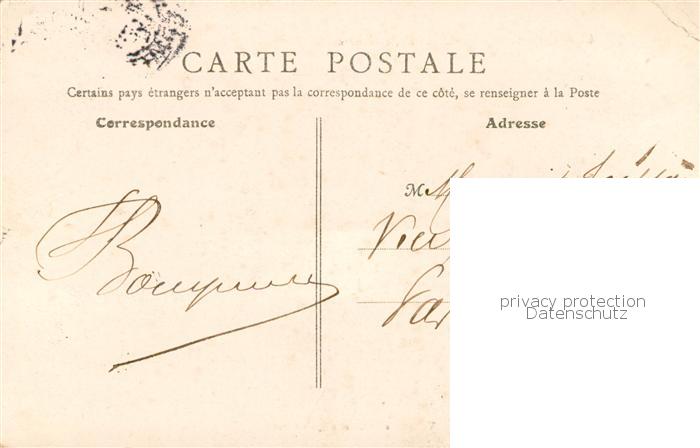 CARTE POSTALE
Certains pays étrangers n'acceptant pas la correspondance de ce côté, se renseigner à la Poste
Correspondance
Adresse
M
privacy protection
Datenschutz